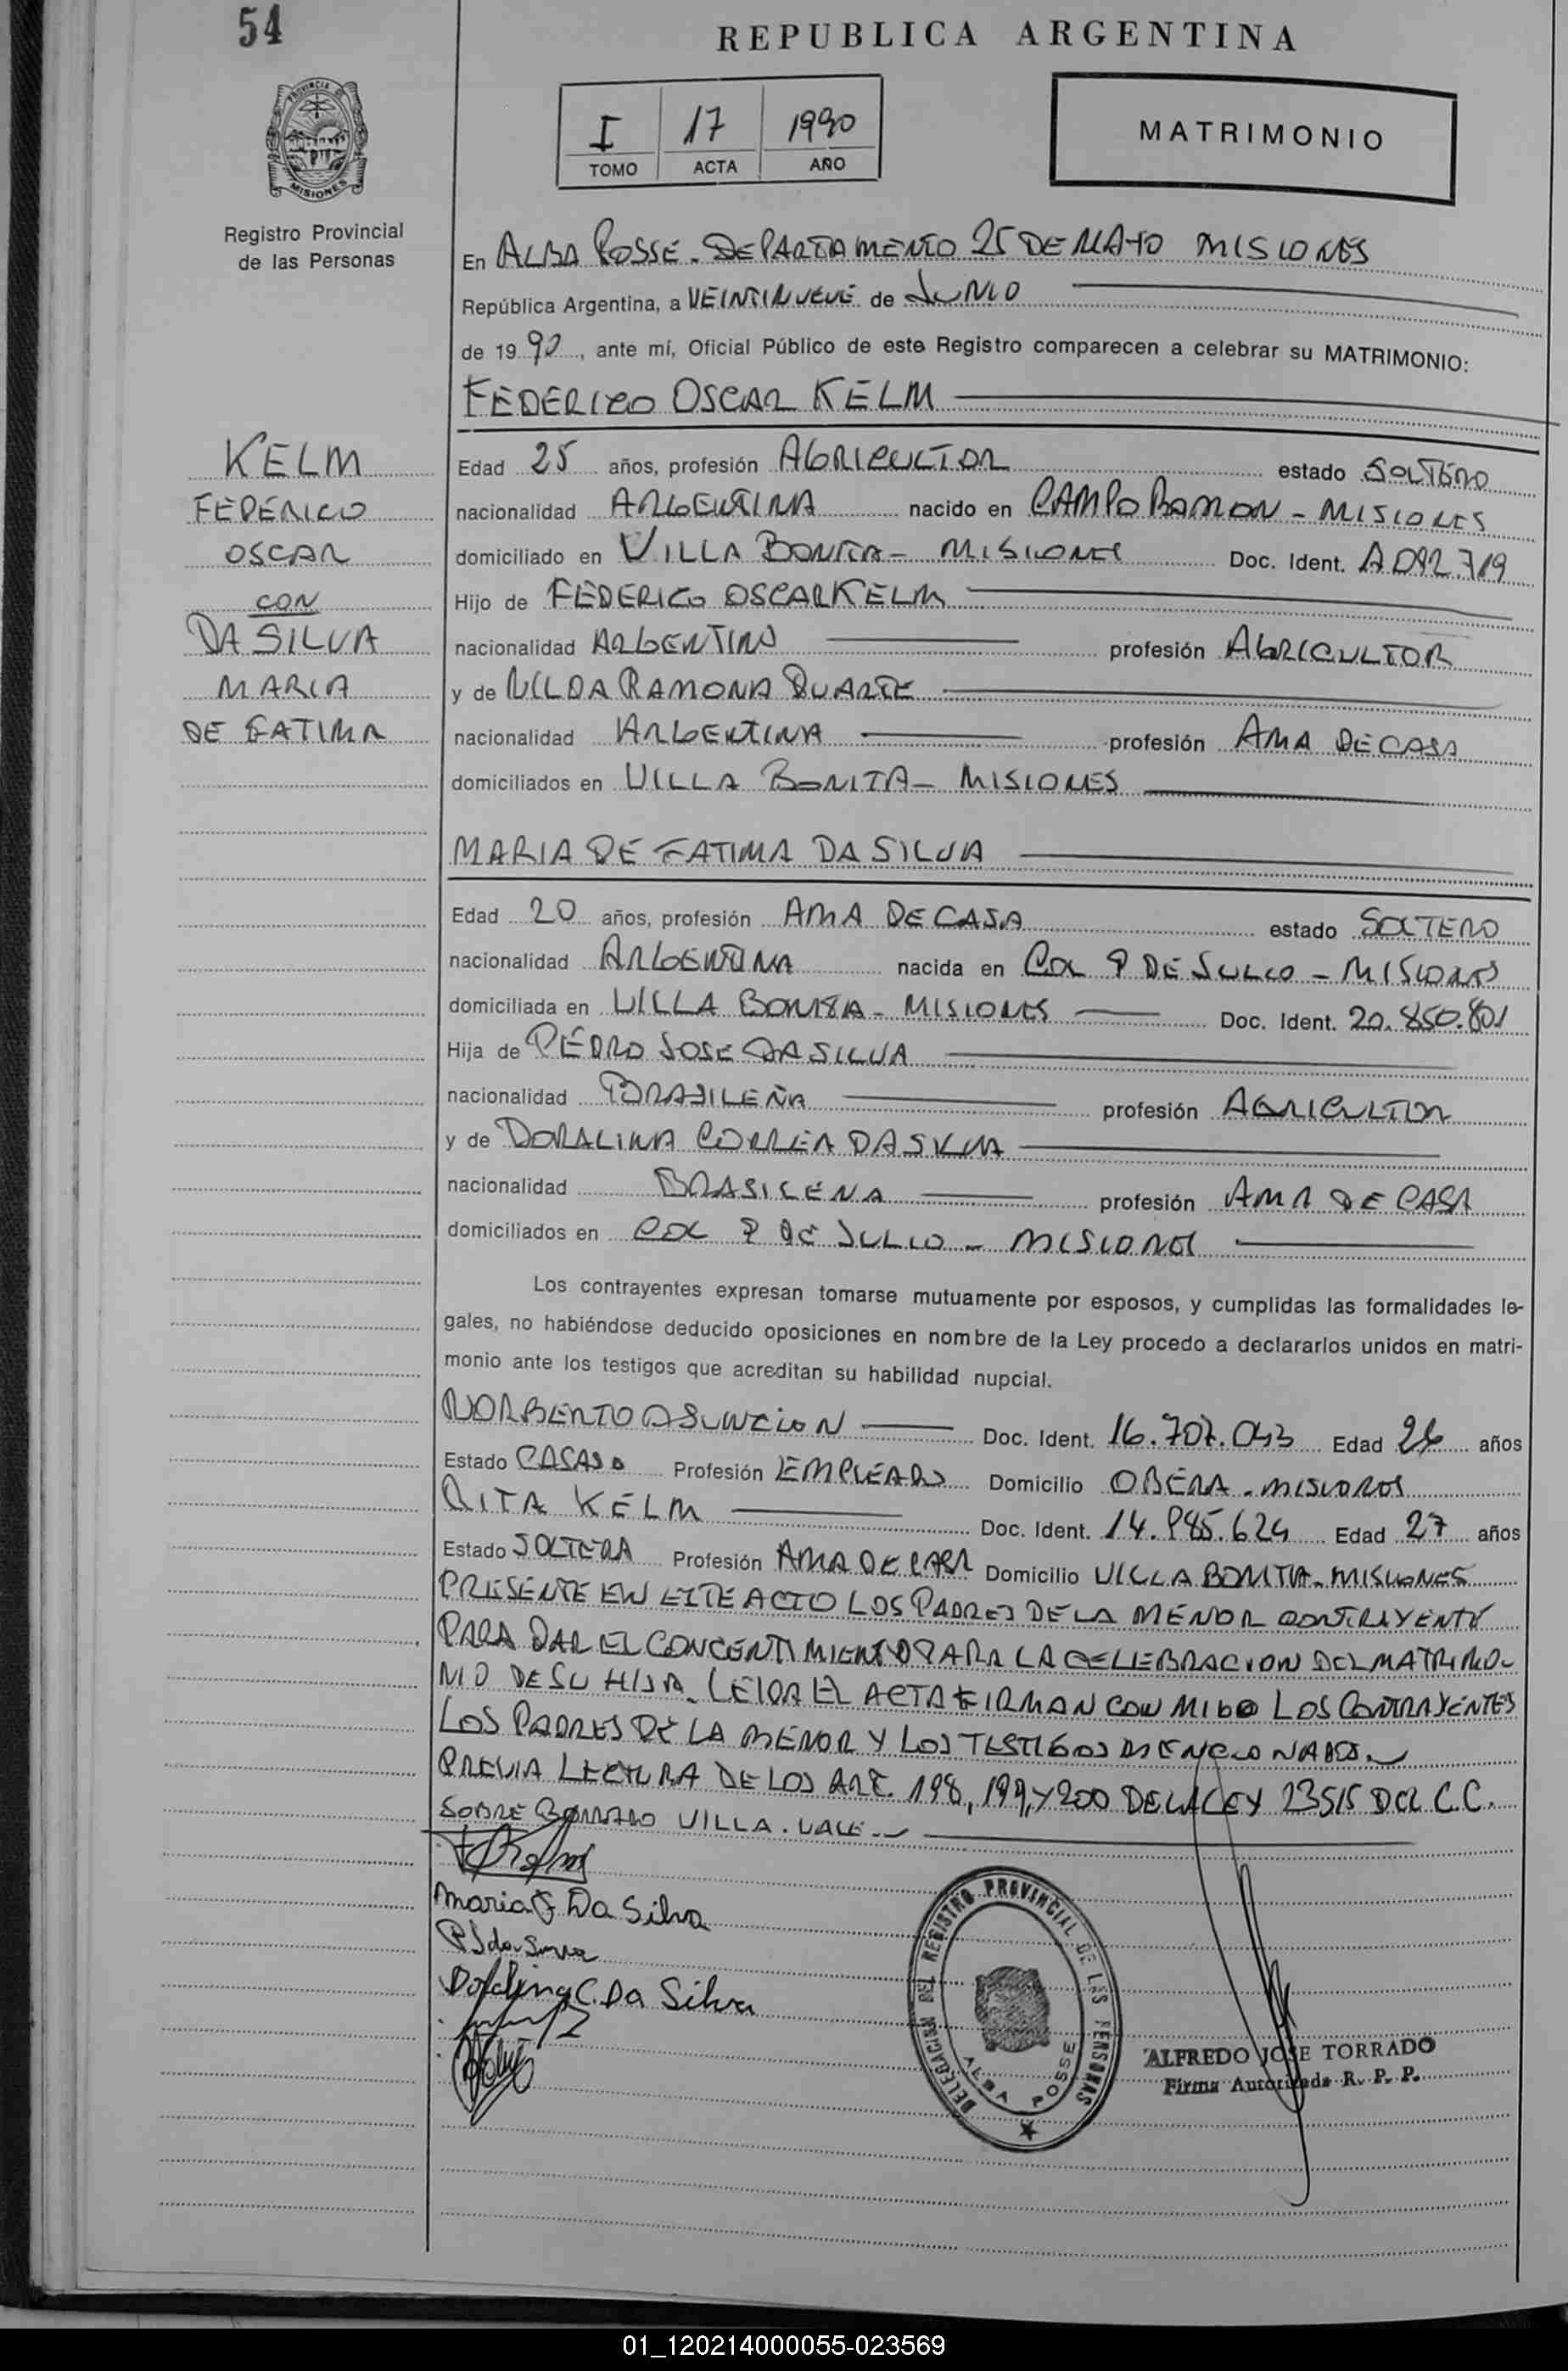 54
REPUBLICA ARGENTINA
PROVINCIA DE
MISIONES
Registro Provincial
de las Personas
I 17 1990
TOMO ACTA AÑO
MATRIMONIO
En ALBA POSSE - DEPARTAMENTO 25 DE MAYO MISIONES
República Argentina, a VEINTINUEVE de JUNIO
de 1990, ante mí, Oficial Público de este Registro comparecen a celebrar su MATRIMONIO:
FEDERICO OSCAR KELM
KELM
FEDERICO
OSCAR
CON
DA SILVA
MARIA
DE FATIMA
Edad 25 años, profesión AGRICULTOR estado SOLTERO
nacionalidad ARGENTINA nacido en CAMPO RAMON - MISIONES
domiciliado en VILLA BONITA - MISIONES Doc. Ident. A D92.719
Hijo de FEDERICO OSCAR KELM
nacionalidad ARGENTINO profesión AGRICULTOR
y de NILDA RAMONA DUARTE
nacionalidad ARGENTINA profesión AMA DE CASA
domiciliados en VILLA BONITA - MISIONES
MARIA DE FATIMA DA SILVA
Edad 20 años, profesión AMA DE CASA estado SOLTERO
nacionalidad ARGENTINA nacida en COL 9 DE JULIO - MISIONES
domiciliada en VILLA BONITA - MISIONES Doc. Ident. 20.850.801
Hija de PEDRO JOSE DA SILVA
nacionalidad BRASILEÑA profesión AGRICULTOR
y de DORALINA CORREA DA SILVA
nacionalidad BRASILENA profesión AMA DE CASA
domiciliados en COL 9 DE JULIO - MISIONES
Los contrayentes expresan tomarse mutuamente por esposos, y cumplidas las formalidades le-
gales, no habiéndose deducido oposiciones en nombre de la Ley procedo a declararlos unidos en matri-
monio ante los testigos que acreditan su habilidad nupcial.
NORBERTO ASUNCION Doc. Ident. 16.707.043 Edad 26 años
Estado CASADO Profesión EMPLEADO Domicilio OBERA - MISIONES
RITA KELM Doc. Ident. 14.985.624 Edad 27 años
Estado SOLTERA Profesión AMA DE CASA Domicilio VILLA BONITA - MISIONES
PRESENTE EN ESTE ACTO LOS PADRES DE LA MENOR CONTRAYENTE
PARA DAR EL CONCENTIMIENTO PARA LA CELEBRACION DEL MATRIMO-
NIO DE SU HIJA. LEIDA EL ACTA FIRMAN CONMIGO LOS CONTRAYENTES
LOS PADRES DE LA MENOR Y LOS TESTIGOS MENCIONADOS
PREVIA LECTURA DE LOS ART. 198, 199, Y 200 DE LA LEY 23515 DEL C.C.
SOBRE BORRADO VILLA. VALE.
Maria F Da Silva
C. Da Silva
DELEGACION DEL REGISTRO PROVINCIAL DE LAS PERSONAS
ALBA POSSE
ALFREDO JOSE TORRADO
Firma Autorizada R. P. P.
01_120214000055-023569